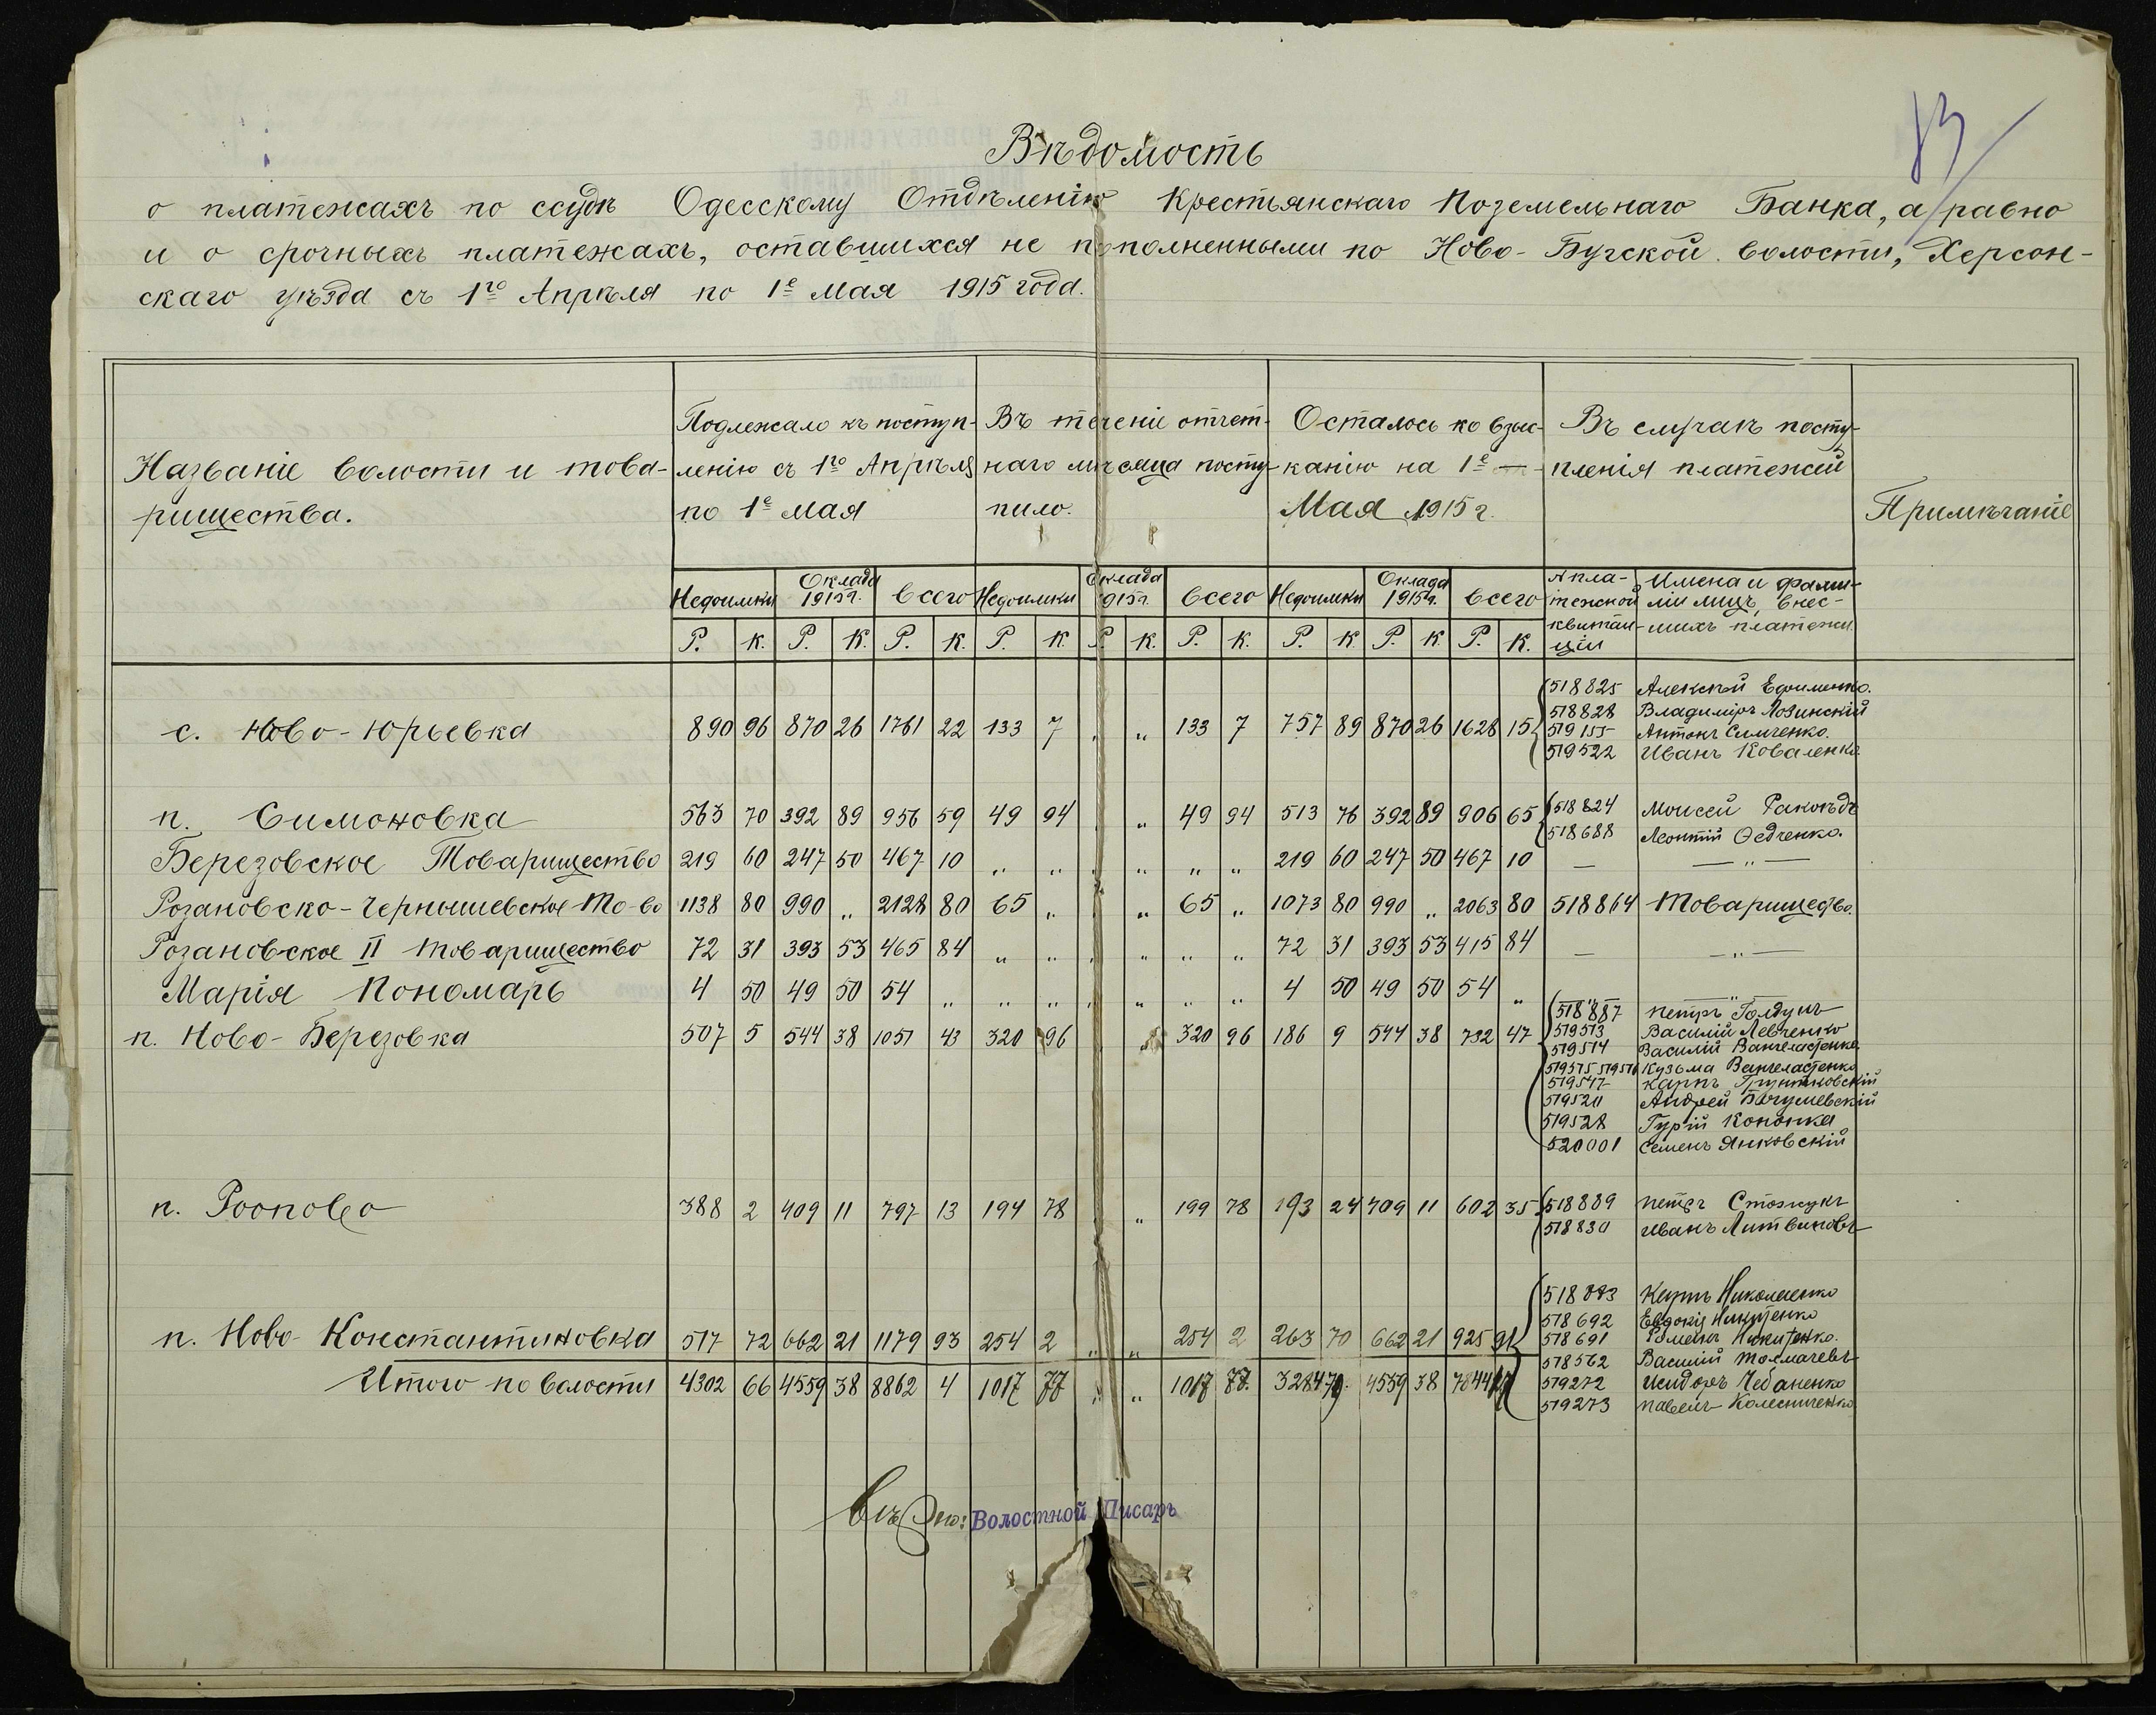 83
Вѣдомость
о платежахъ по ссудѣ Одесскому Отдѣленію Крестьянскаго Поземельнаго Банка, а равно
и о срочныхъ платежахъ, оставшихся не пополненными по Ново-Бугской волости, Херсон-
скаго уѣзда съ 1го Апрѣля по 1е Мая 1915 года.
Названіе волости и това-
рищества.
Подлежало къ поступ-
ленію съ 1го Апрѣля
по 1е мая
Въ теченіе отчет-
наго мѣсяца посту-
пило.
Осталось ко взыс-
канію на 1е —
Мая 1915 г.
Въ случаѣ посту-
пленія платежей
Примѣчаніе
Недоимки Оклада 1915г. всего Недоимки Оклада 1915г. всего Недоимки Оклада 1915г. всего
№ пла-
тежной
квитан-
ціи
Имена и фами-
ліи лицъ, внес-
шихъ платежи.
Р. К. Р. К. Р. К. Р. К. Р. К. Р. К. Р. К. Р. К. Р. К.
с. Ново-Юрьевка 890 96 870 26 1761 22 133 7 „ „ 133 7 757 89 870 26 1628 15
518825 Алексѣй Ефименко.
518828 Владиміръ Лозинскій
519155 Антонъ Симченко.
519522 Иванъ Коваленко
п. Симоновка 563 70 392 89 956 59 49 94 „ „ 49 94 513 76 392 89 906 65
518824 Моисей Ракоѣдъ
518688 Леонтій Ѳедченко.
Березовское Товарищество 219 60 247 50 467 10 „ „ „ „ „ „ 219 60 247 50 467 10 — — „ —
Розановско-Чернышевское То-во 1138 80 990 „ 2128 80 65 „ „ 65 „ 1073 80 990 „ 2063 80 518864 Товарищество.
Розановское II товарищество 72 31 393 53 465 84 „ „ „ „ „ „ 72 31 393 53 415 84 — — „ —
Марія Пономарь 4 50 49 50 54 „ „ „ „ „ „ „ 4 50 49 50 54 „
п. Ново-Березовка 507 5 544 38 1051 43 320 96 320 96 186 9 544 38 732 47
518887 Петръ Голдунъ
519513 Василій Левченко
519514 Василій
519515 519516 Кузьма
519517 Карпъ
519520 Андрей
519528 Гурій Кононка
520001 Семенъ Янковскій
п. Роопово 388 2 409 11 797 13 194 78 „ 199 78 193 24 409 11 602 35
518889 Петръ Стожукъ
518830 Иванъ Литвиновъ
п. Ново-Константиновка 517 72 662 21 1179 93 254 2 „ „ 254 2 263 70 662 21 925 91
Карпъ Николаенко
518692 Евдокія Никитенко
518691 Никитенко.
518562 Василій Толмачевъ
519272 Исидоръ Чебаненко
519273 Павелъ Колесниченко
Итого по волости 4302 66 4559 38 8862 4 1017 77 „ „ 1017 77. 3284 79. 4559 38 7844
Волостной Писарь